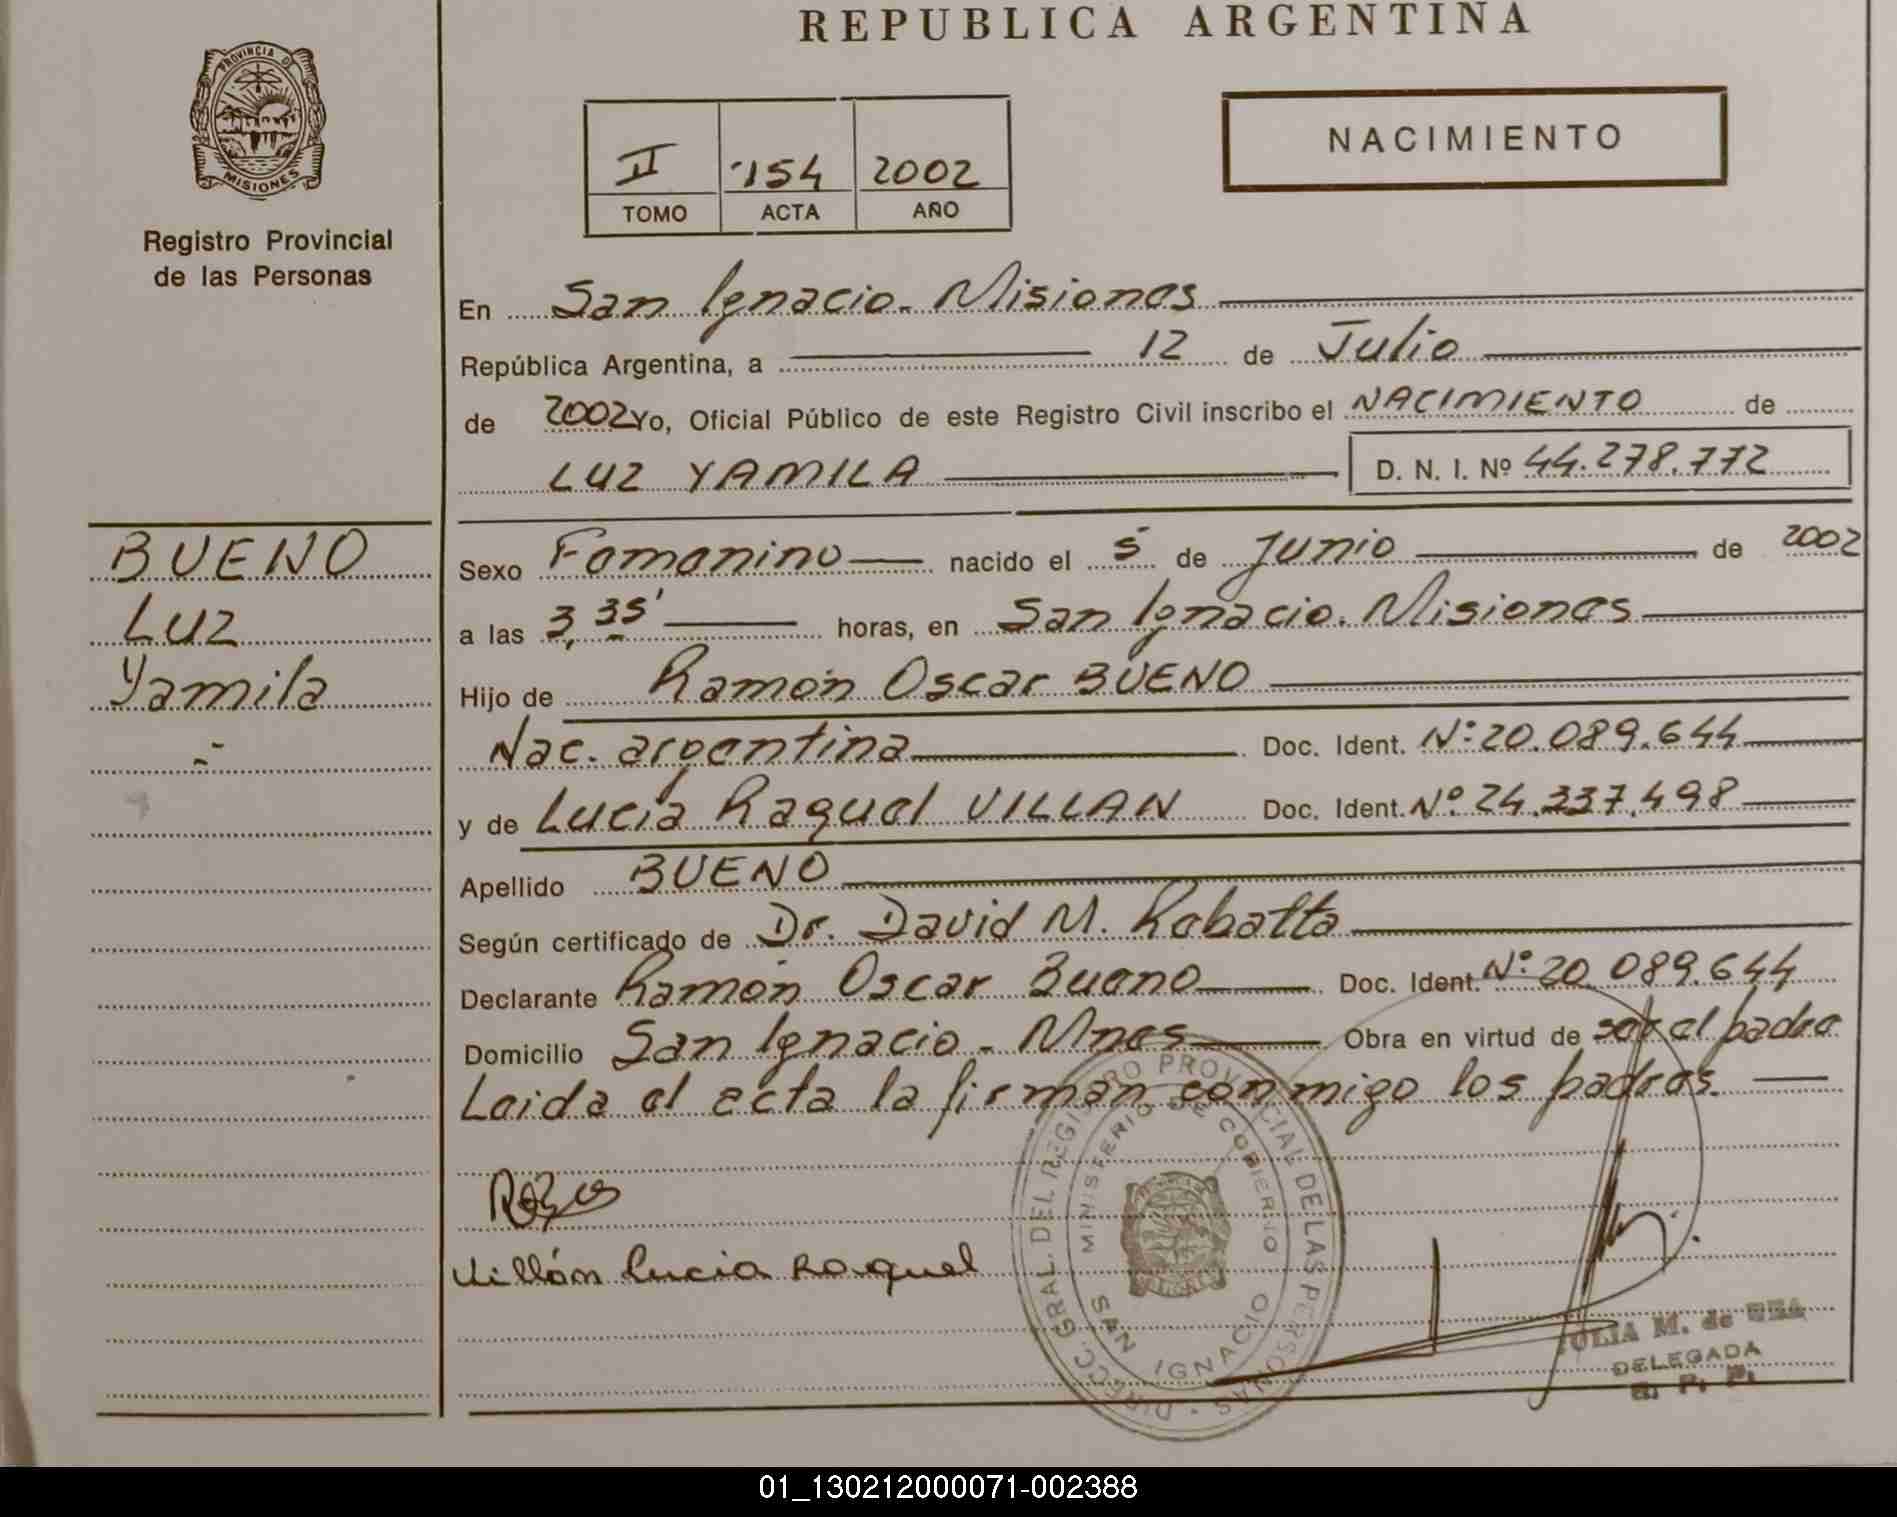 REPUBLICA ARGENTINA
PROVINCIA D
MISIONES
Registro Provincial
de las Personas
NACIMIENTO
II 154 2002
TOMO ACTA AÑO
En San Ignacio - Misiones
República Argentina, a 12 de Julio
de 2002 Yo, Oficial Público de este Registro Civil inscribo el NACIMIENTO de
LUZ YAMILA D. N. I. Nº 44.278.772
BUENO
Luz
Yamila
Sexo Femenino nacido el 5 de Junio de 2002
a las 3,35' horas, en San Ignacio. Misiones
Hijo de Ramón Oscar BUENO
Nac. argentina Doc. Ident. Nº 20.089.644
y de Lucía Raquel VILLAN Doc. Ident. Nº 24.337.498
Apellido BUENO
Según certificado de Dr. David M. Rabatta
Declarante Ramón Oscar Bueno Doc. Ident. Nº 20.089.644
Domicilio San Ignacio - Mnes Obra en virtud de ser el padre
Leida el acta la firman conmigo los padres.
Villán Lucia Raquel
DIRECC. GRAL. DEL REGISTRO PROVINCIAL DE LAS PERSONAS
MINISTERIO DE GOBIERNO
SAN IGNACIO
JULIA M. de
DELEGADA
R. P. P.
01_130212000071-002388